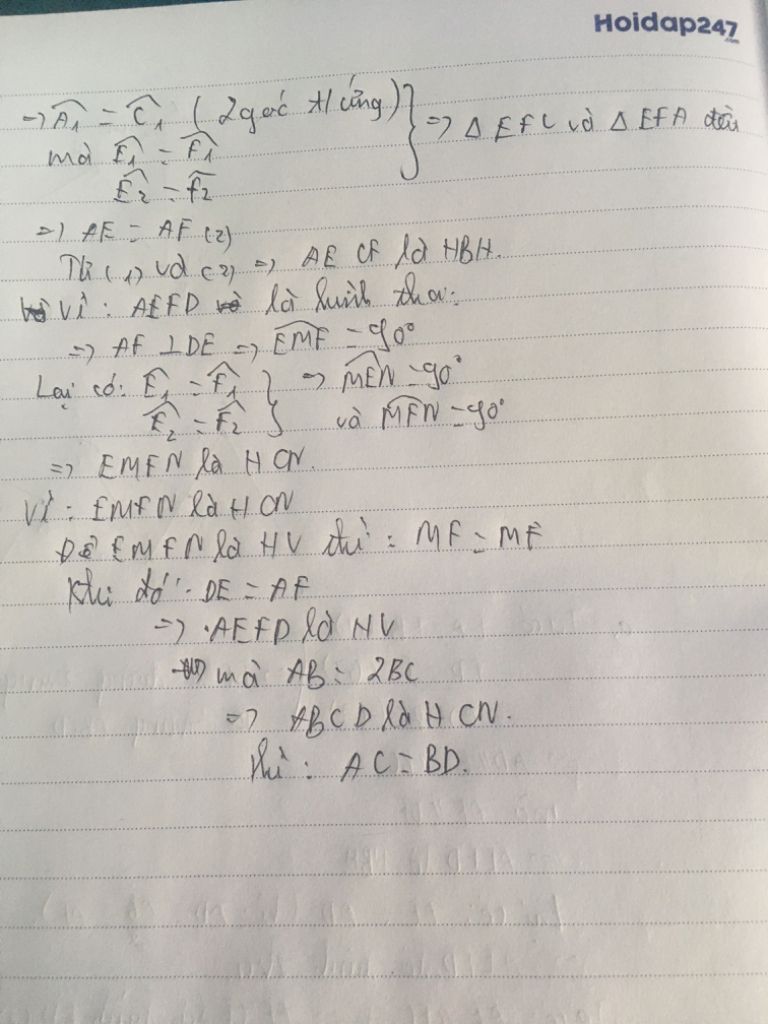 Hoidap247
=> Â₁ = Ĉ₁ (2 góc t/ứng)
mà Ê₁ = F̂₁
Ê₂ = F̂₂
} => Δ EFC và Δ EFA đều
=> AE = AF (2)
Từ (1) và (2) => AE CF là HBH.
Vì: AEFD là hình thoi:
=> AF ⊥ DE => EMF = 90°
Lại có: Ê₁ = F̂₁ } => MEN = 90°
Ê₂ = F̂₂ và MFN = 90°
=> EMFN là HCN.
Vì: EMFN là HCN
Để EMFN là HV thì: MF = ME
Khi đó: DE = AF
=> AEFD là HV
mà AB = 2BC
=> ABCD là HCN.
thì: AC = BD.